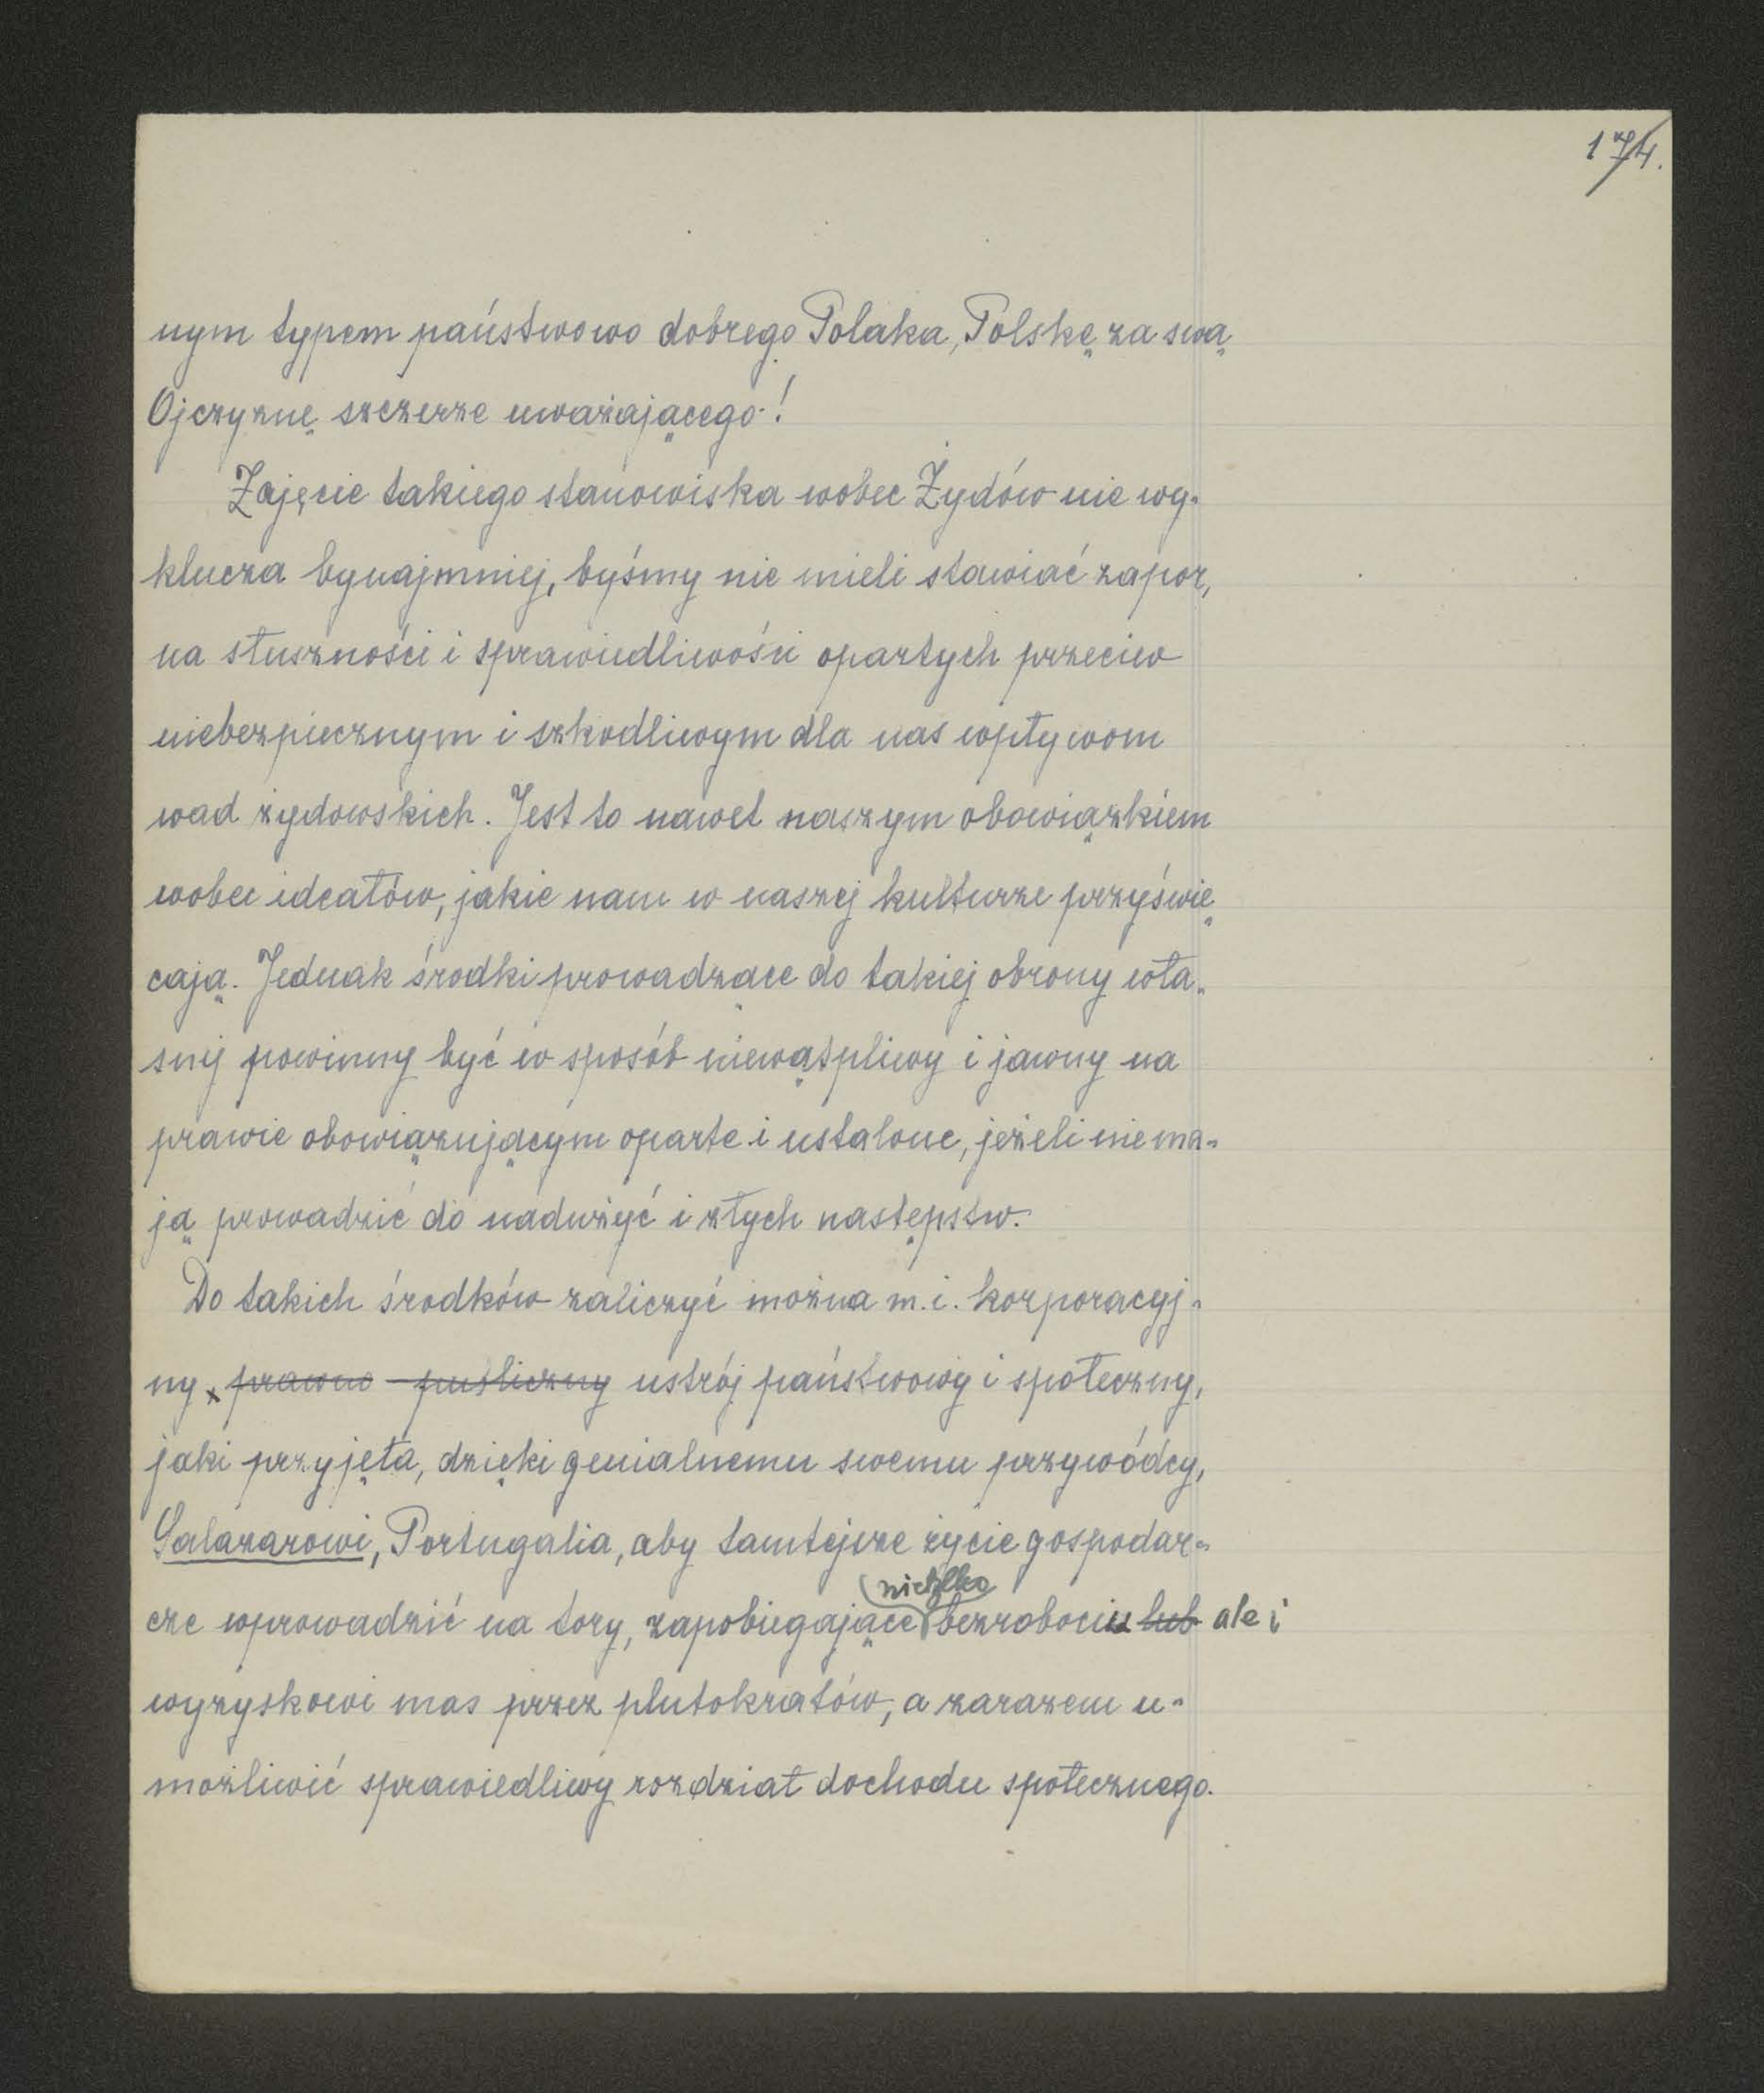 174.
nym typem państwowo dobrego Polaka, Polskę za swą
Ojczyznę szczerze uważającego!
Zajęcie takiego stanowiska wobec Żydów nie wy-
klucza bynajmniej, byśmy nie mieli stawiać zapor,
na słuszności i sprawiedliwości opartych przeciw
niebezpiecznym i szkodliwym dla nas wpływom
wad żydowskich. Jest to nawet naszym obowiązkiem
wobec ideałów, jakie nam w naszej kulturze przyświę
cają. Jednak środki prowadzące do takiej obrony wła-
snej powinny być w sposób niewątpliwy i jawny na
prawie obowiązującym oparte i ustalone, jeżeli nie ma-
ją prowadzić do nadużyć i złych następstw.
Do takich środków zaliczyć można m.i. korporacyj-
ny x prawno - publiczny ustrój państwowy i społeczny,
jaki przyjęła, dzięki genialnemu swemu przywódcy,
Salazarowi, Portugalia, aby tamtejsze życie gospodar-
nietylko
cze wprowadzić na tory, zapobiegające bezrobociu lub ale i
wyzyskowi mas przez plutokratów, a zarazem u-
możliwić sprawiedliwy rozdział dochodu społecznego.